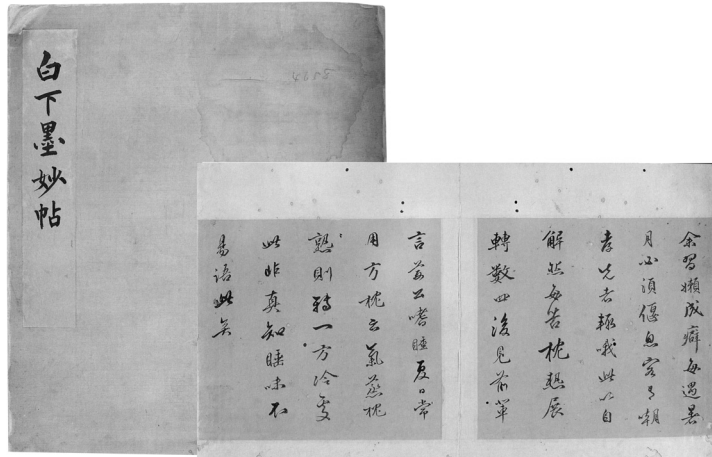 白下墨妙帖
余習懶成癖每遇暑
月必須偃息客有嘲
孝先者輒哦此以自
解然每苦枕熱展
轉數四後見前輩
言荊公嗜睡夏日常
用方枕云氣蒸枕
熱則轉一方冷處
此非真知睡味不
易語此矣